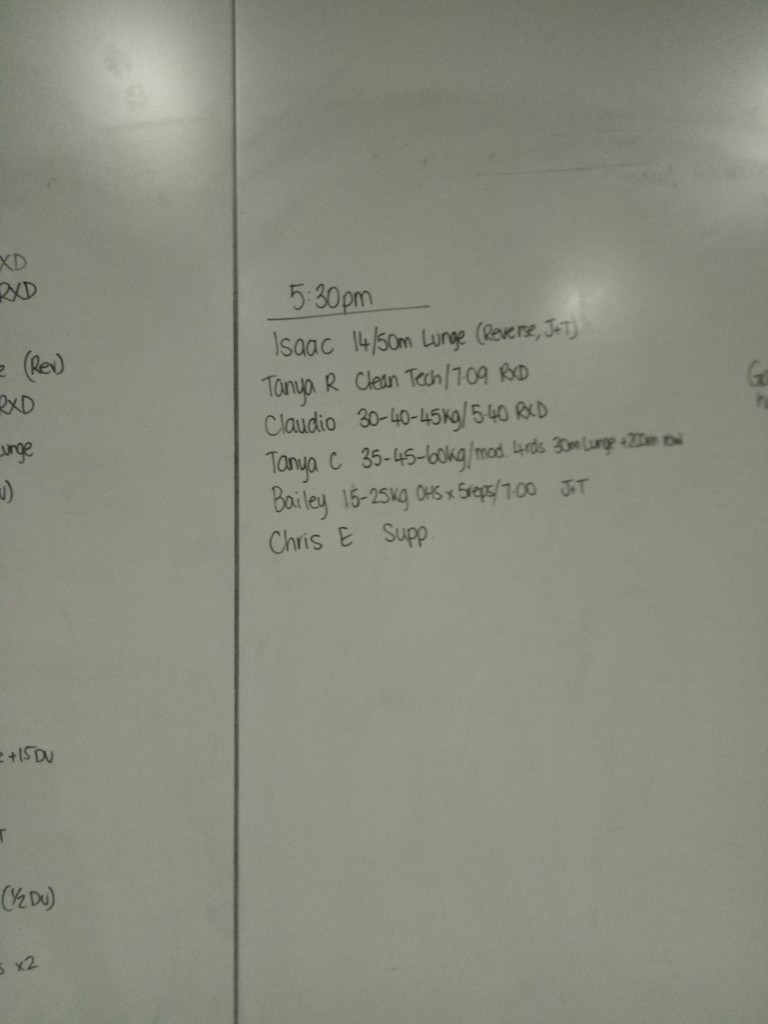 XD
RXD
(Rev)
RXD
unge
+15 DU
(1/2 DU)
x2
5:30pm
Isaac 14/50m Lunge (Reverse, J+T)
Tanya R Clean Tech/7.09 RXD
Claudio 30-40-45kg/5.40 RXD
Tanya C 35-45-60kg/mod. 4rds 30m Lunge +200m row
Bailey 15-25kg OHS x 5reps/7.00 J+T
Chris E Supp.